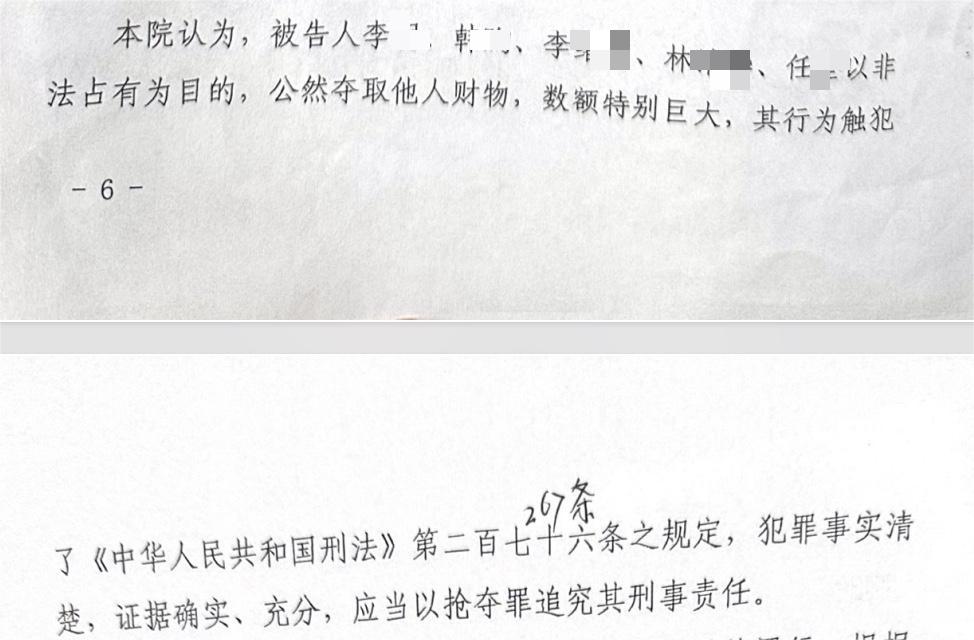 本院认为，被告人李 韩 、李 、林 、任 以非
法占有为目的，公然夺取他人财物，数额特别巨大，其行为触犯
- 6 -
267条
了《中华人民共和国刑法》第二百七十六条之规定，犯罪事实清
楚，证据确实、充分，应当以抢夺罪追究其刑事责任。